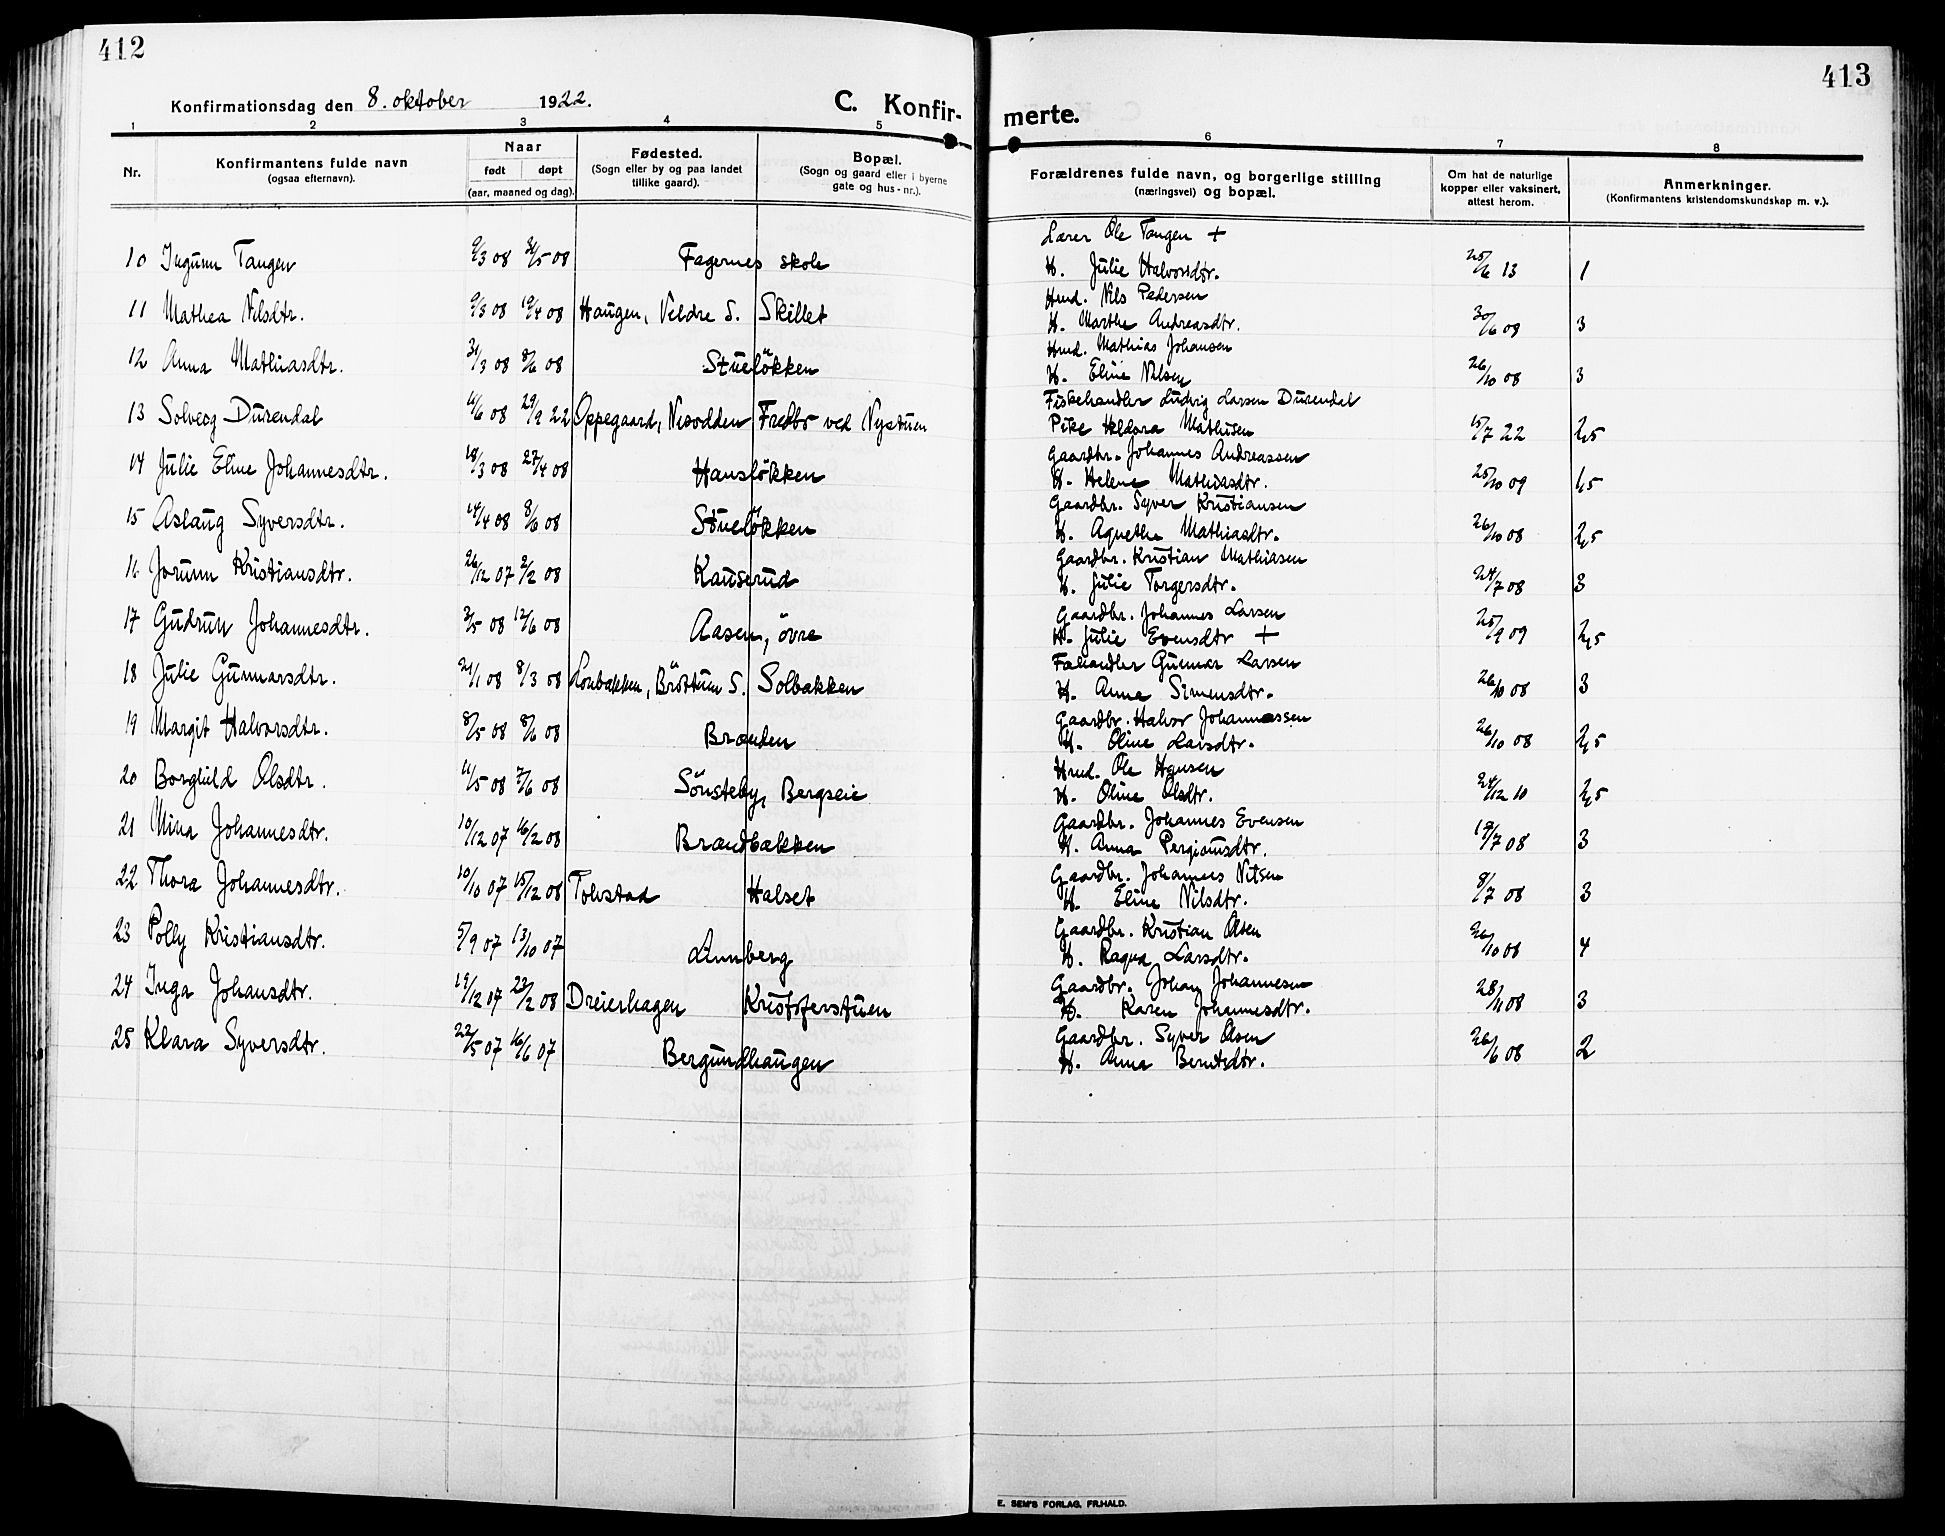 412
413
Konfirmationsdag den 8. oktober 1922.
C. Konfir-
merte.
1 2 3 4 5 6 7 8
Nr.
Konfirmantens fulde navn
(ogsaa efternavn).
Naar
født døpt
(aar, maaned og dag).
Fødested.
(Sogn eller by og paa landet
tillike gaard).
Bopæl.
(Sogn og gaard eller i byerne
gate og hus-nr.).
Forældrenes fulde navn, og borgerlige stilling
(næringsvei) og bopæl.
Om hat de naturlige
kopper eller vaksinert,
attest herom.
Anmerkninger.
(Konfirmantens kristendomskundskap m. v.).
Lærer Ole Tangen +
10 Ingunn Tangen 9/3 08 31/5 08 Fagernes skole H. Julie Halvorsdtr. 25/6 13 1
Hmd. Nils Pedersen
11 Mathea Nilsdtr. 9/3 08 19/4 08 Haugen, Veldre S. Skillet H. Marthe Andreasdtr. 30/6 08 3
Hmd. Mathias Johansen
12 Anna Mathiasdtr. 31/3 08 8/6 08 Stueløkken H. Eline Nilsen 26/10 08 3
Fiskehandler Ludvig Larsen Durendal
13 Solveog Durendal 11/6 08 29/9 22 Oppegaard, Nesodden Fredbo ved Nysturen Pike Heldora Mathisen 15/7 22 2,5
Gaardbr. Johannes Andreassen
14 Julie Eline Johannesdtr. 18/3 08 27/4 08 Hansløkken H. Helene Mathiasdtr. 25/10 09 1,5
Gaardbr. Syver Kristiansen
15 Aslaug Syversdtr. 14/4 08 8/6 08 Stueløkken H. Agnethe Mathiasdtr. 26/10 08 2,5
Gaardbr. Kristian Mathiasen
16 Jorunn Kristiansdtr. 26/12 07 2/2 08 Kauserud H. Julie Torgersdtr. 24/7 08 3
Gaardbr. Johannes Larsen
17 Gudrun Johannesdtr. 3/5 08 12/6 08 Aasen, övre H. Julie Evensdtr + 25/9 09 2,5
Fæhandler Gunnar Larsen
18 Julie Gunnarsdtr. 21/1 08 8/3 08 Lonbakken, Bröttum S. Solbakken H. Anna Simensdtr. 26/10 08 3
Gaardbr. Halvor Johannessen
19 Margit Halvorsdtr. 8/5 08 8/6 08 Brænden H. Oline Larsdtr. 26/10 08 2,5
Hmd. Ole Hansen
20 Borghild Olsdtr. 11/5 08 7/6 08 Sönsteby, Bergseie H. Oline Olsdtr. 24/12 10 2,5
Gaardbr. Johannes Evensen
21 Mina Johannesdtr. 10/12 07 16/2 08 Brændbakken H. Anna Pergiomsdtr. 19/7 08 3
Gaardbr. Johannes Nilsen
22 Thora Johannesdtr. 10/10 07 15/12 08 Tolvstad Halset H. Eline Nilsdtr. 8/7 08 3
Gaardbr. Kristian Olsen
23 Polly Kristiansdtr. 5/9 07 13/10 07 Lunnberg H. Ragna Larsdtr. 26/10 08 4
Gaardbr. Johan Johannesen
24 Inga Johansdtr. 19/12 07 23/2 08 Dreierhagen Kristoferstuen H. Karen Johannesdtr. 28/11 08 3
Gaardbr. Syver Olsen
25 Klara Syversdtr. 22/5 07 16/6 07 Bergundhaugen H. Anna Berntsdtr. 26/6 08 2
E. SEM'S FORLAG, FR.HALD.